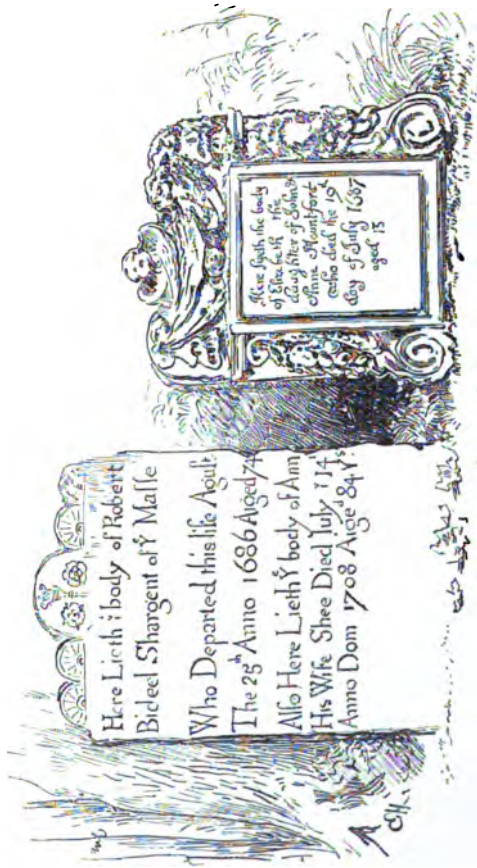 Here Lieth ẙ body of Robert
Bideel Shargent of Y̊ Masse
Who Departed this life Agust
The 25th Anno 1686 Aiged 74
Also Here Lieth Y̊ body of Ann
His Wife Shee Died July ẙ 14
Anno Dom 1708 Aiged 84 Yˢ
Here lyeth the body
of Elizabeth the
daughter of John &
Anne Mountfort
who died the 19th
day of July 1687
aged 13